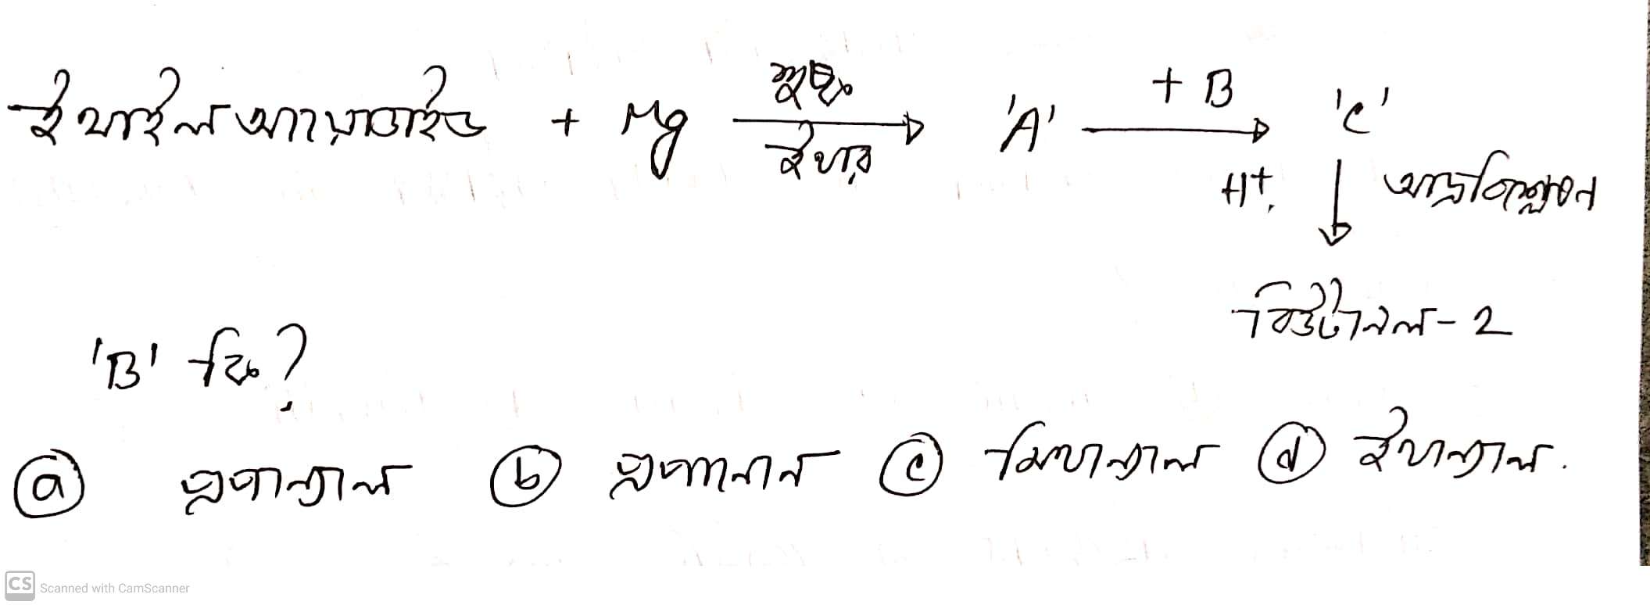 ইথাইল আয়োডাইড + Mg শুষ্ক ইথার 'A' + B H+ 'C'
আর্দ্রবিশ্লেষণ
বিউটানল-2
'B' কি?
ⓐ প্রপান্যাল ⓑ প্রপানোন ⓒ মিথান্যাল ⓓ ইথান্যাল.
CS Scanned with CamScanner